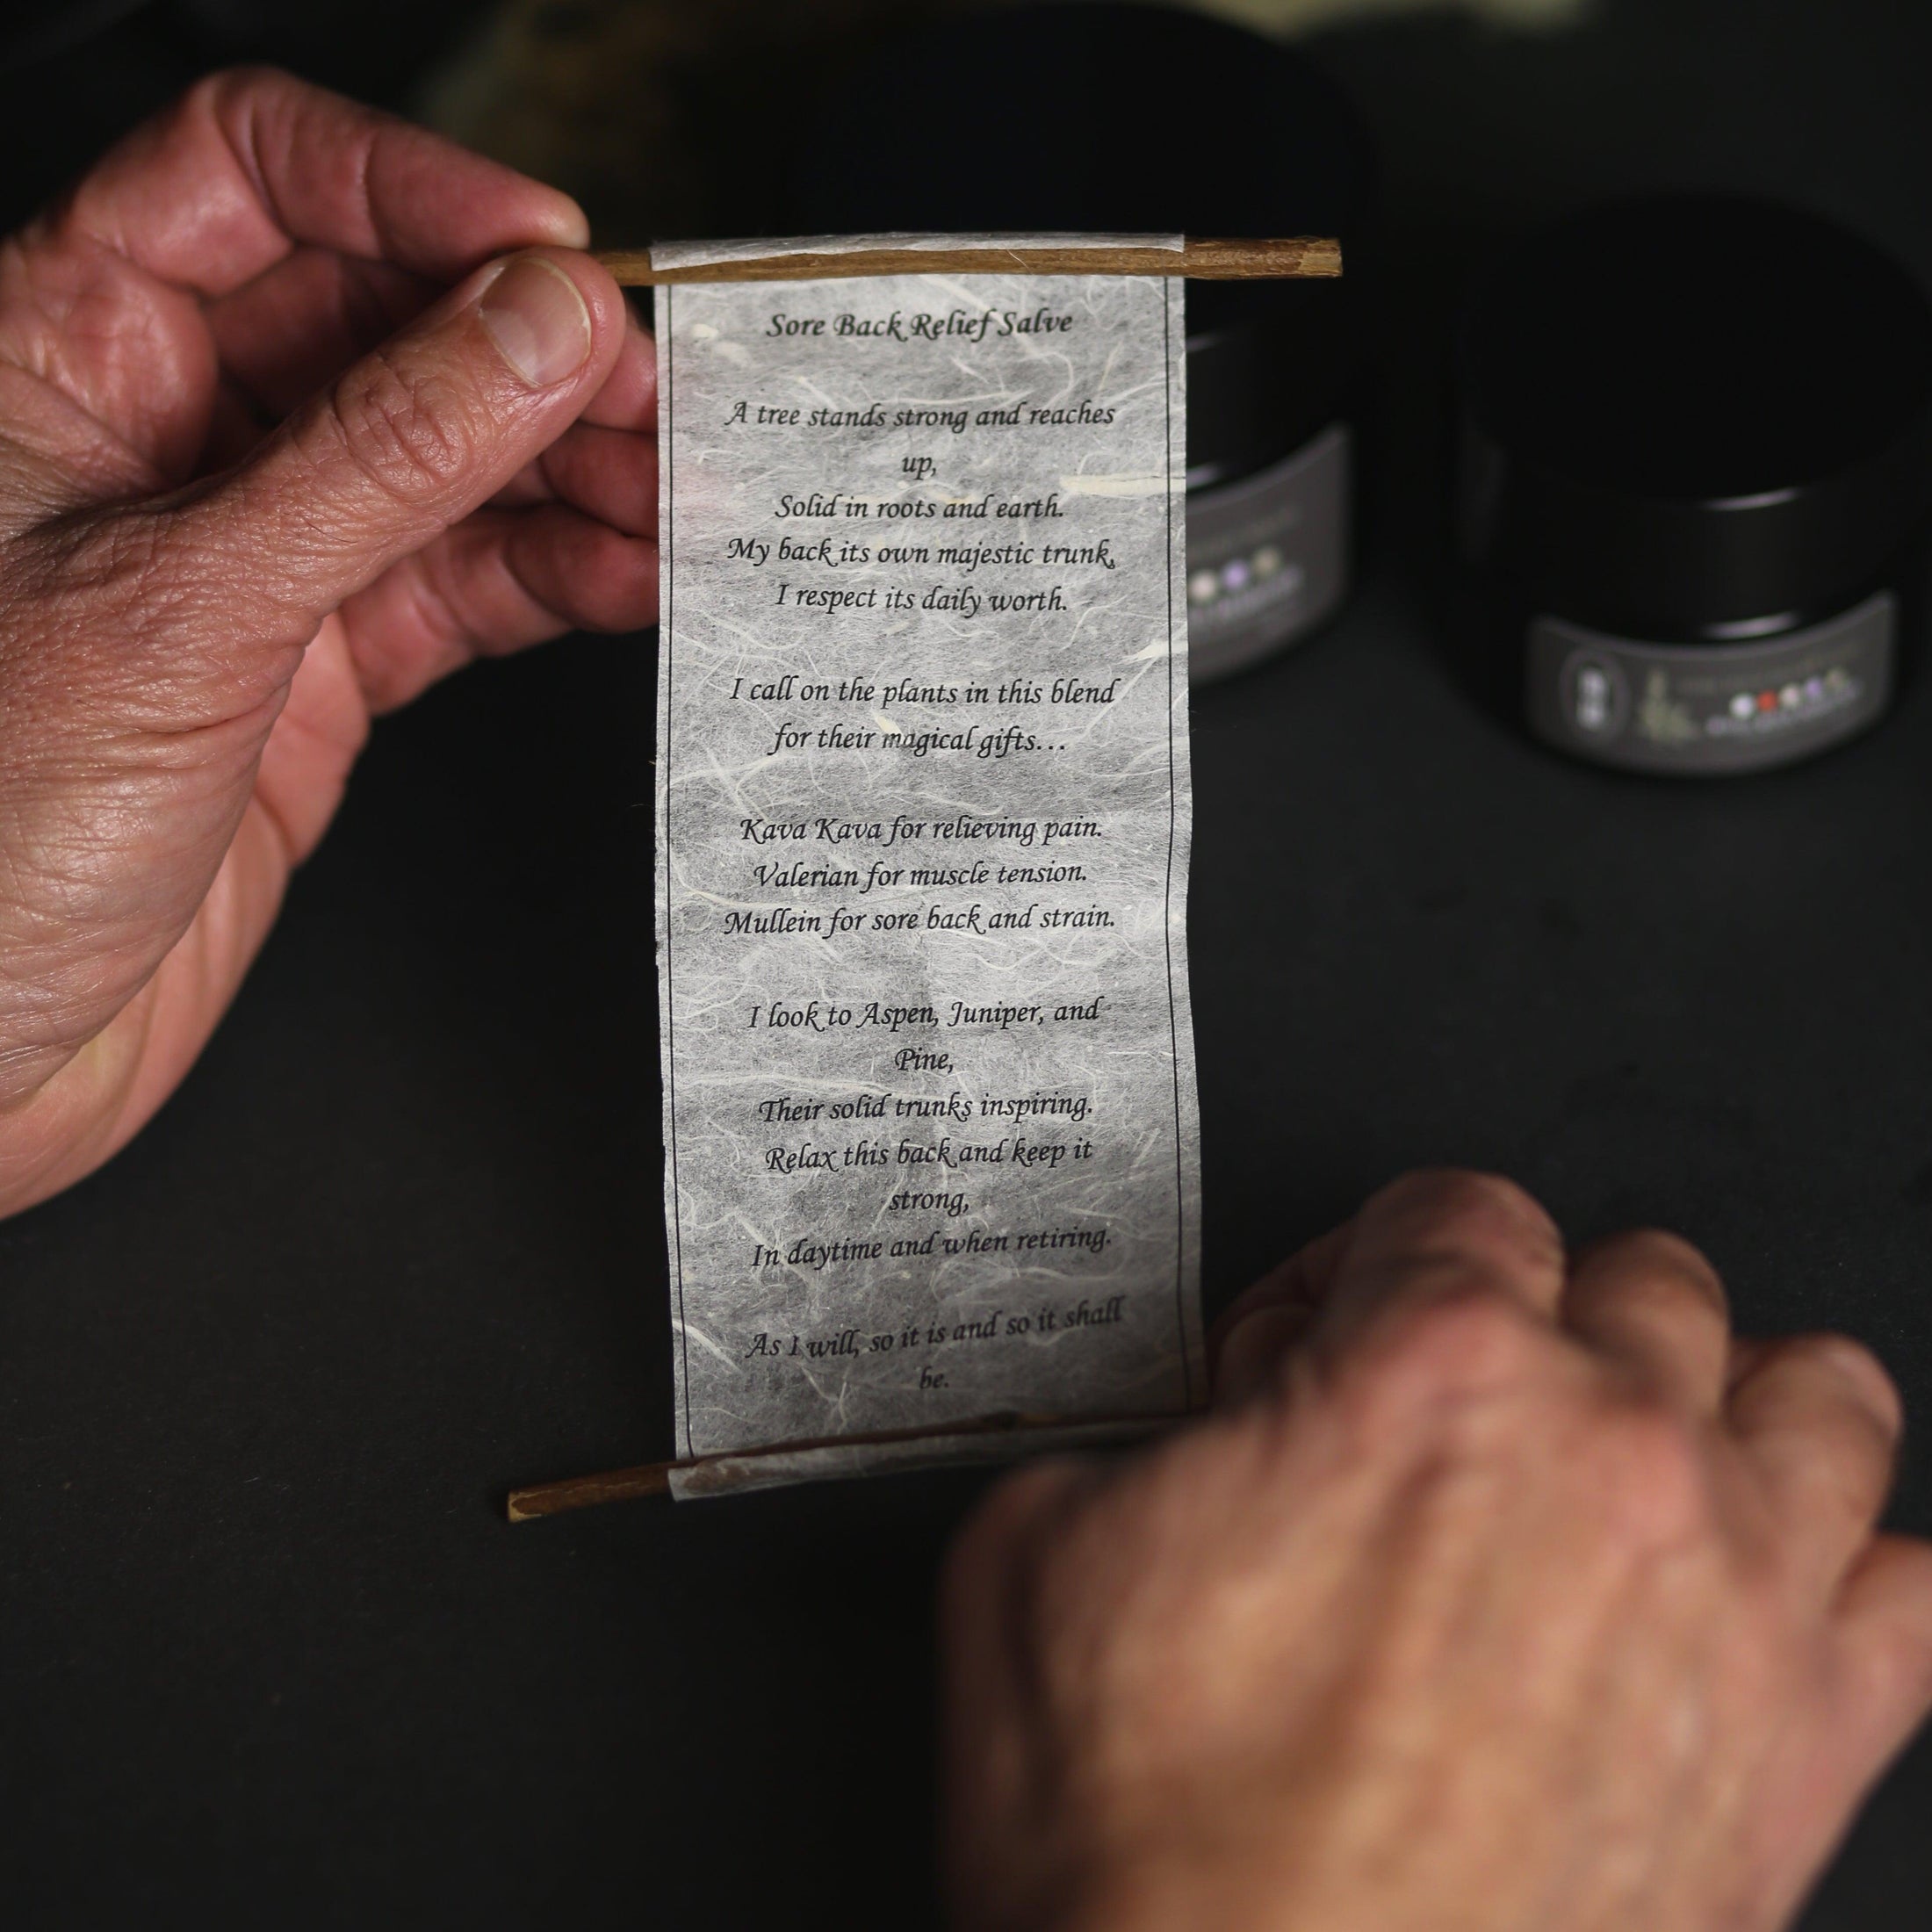 Sore Back Relief Salve
A tree stands strong and reaches
up,
Solid in roots and earth.
My back its own majestic trunk,
I respect its daily worth.
I call on the plants in this blend
for their magical gifts...
Kava Kava for relieving pain.
Valerian for muscle tension.
Mullein for sore back and strain.
I look to Aspen, Juniper, and
Pine,
Their solid trunks inspiring.
Relax this back and keep it
strong,
In daytime and when retiring.
As I will, so it is and so it shall
be.